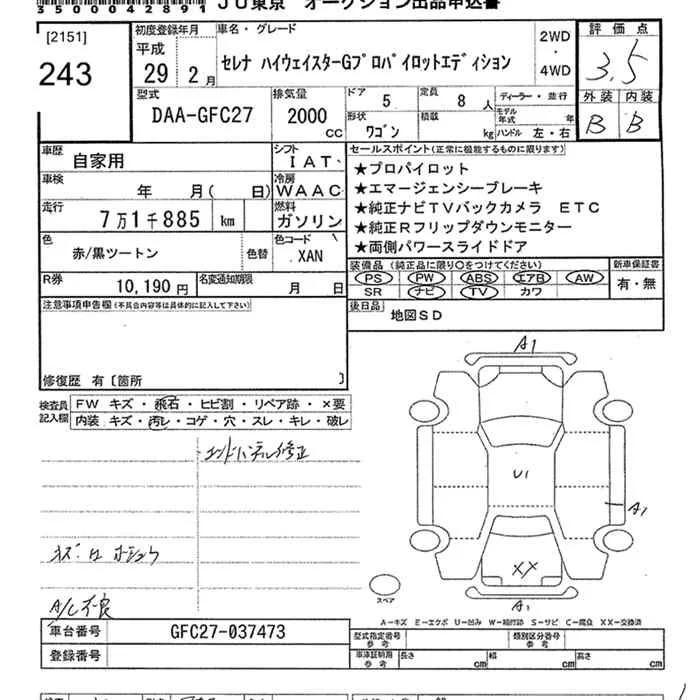 3500042891 JU東京 オークション出品申込書
[2151]
243
初度登録年月
平成
29年 2月
車名・グレード
セレナ ハイウェイスターGプロパイロットエディション
2WD
・
4WD
評価点
3.5
外装 内装
B B
型式
DAA-GFC27
排気量
2000
CC
ドア
5
定員
8人
形状
ワゴン
積載
kg
ディーラー・並行
モデル年式 年
ハンドル 左・右
車歴
自家用
シフト
IAT
車検
年 月( 日)
冷房
WAAC
走行
7万1千885 km
燃料
ガソリン
色
赤/黒ツートン
色替
色コード
XAN
R券
10,190円
名変通知期限
月 日
セールスポイント(正常に機能するものに限ります)
★プロパイロット
★エマージェンシーブレーキ
★純正ナビTVバックカメラ ETC
★純正Rフリップダウンモニター
★両側パワースライドドア
装備品(純正品に限り○をつけてください)
PS PW ABS エアB AW
SR ナビ TV カワ
新車保証書
有・無
後日品
地図SD
注意事項申告欄(不具合内容等は具体的に記入して下さい)
修復歴 有〔箇所 〕
検査員記入欄
FW キズ・飛石・ヒビ割・リペア跡・×要
内装 キズ・汚レ・コゲ・穴・スレ・キレ・破レ
A/C不良
A1
U1
A1
XX
A1
スペア
A-キズ E-エクボ U-凹み W-補修跡 S-サビ C-腐食 XX-交換済
車台番号
GFC27-037473
登録番号
型式指定番号
参考
類別区分番号
参考
車庫証明用
参考
長さ cm
幅 cm
高さ cm